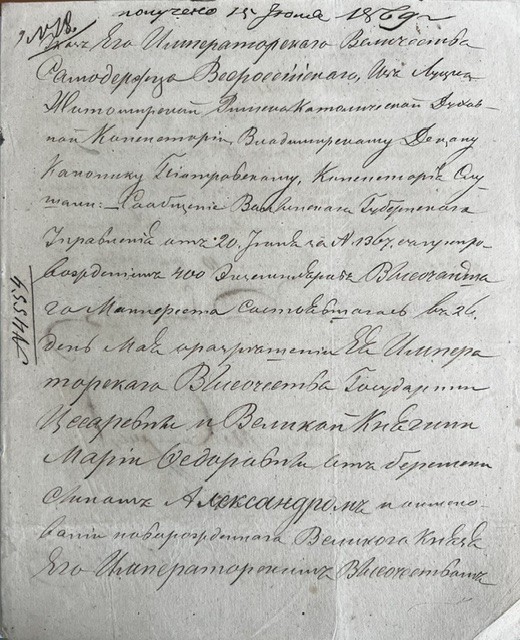 получено 15 Июля 1869 г.
№ 18.
Указъ Его Императорскаго Величества
Самодержца Всероссійскаго, Изъ Луцко
Житомирской Римско Католической Духов-
ной Консисторіи, Владимирскому Декану
Канонику Піотровскому, Консисторія Слу
шали: Сообщеніе Волынскаго Губернскаго
Правленія отъ 20, Іюня за № 1367, съ препро
вожденіемъ 400 Экземпляровъ Высочайша
го Манифеста Состоявшагося въ 26.
день Мая о разрѣшеніи Ея Импера
торскаго Высочества Государыни
Цесаревны и Великой Княгини
Маріи Ѳедоровны отъ беремени
Сыномъ Александромъ и о имено-
ваніи новорожденнаго Великаго Князя
Его Императорскимъ Высочествомъ
№ 4554